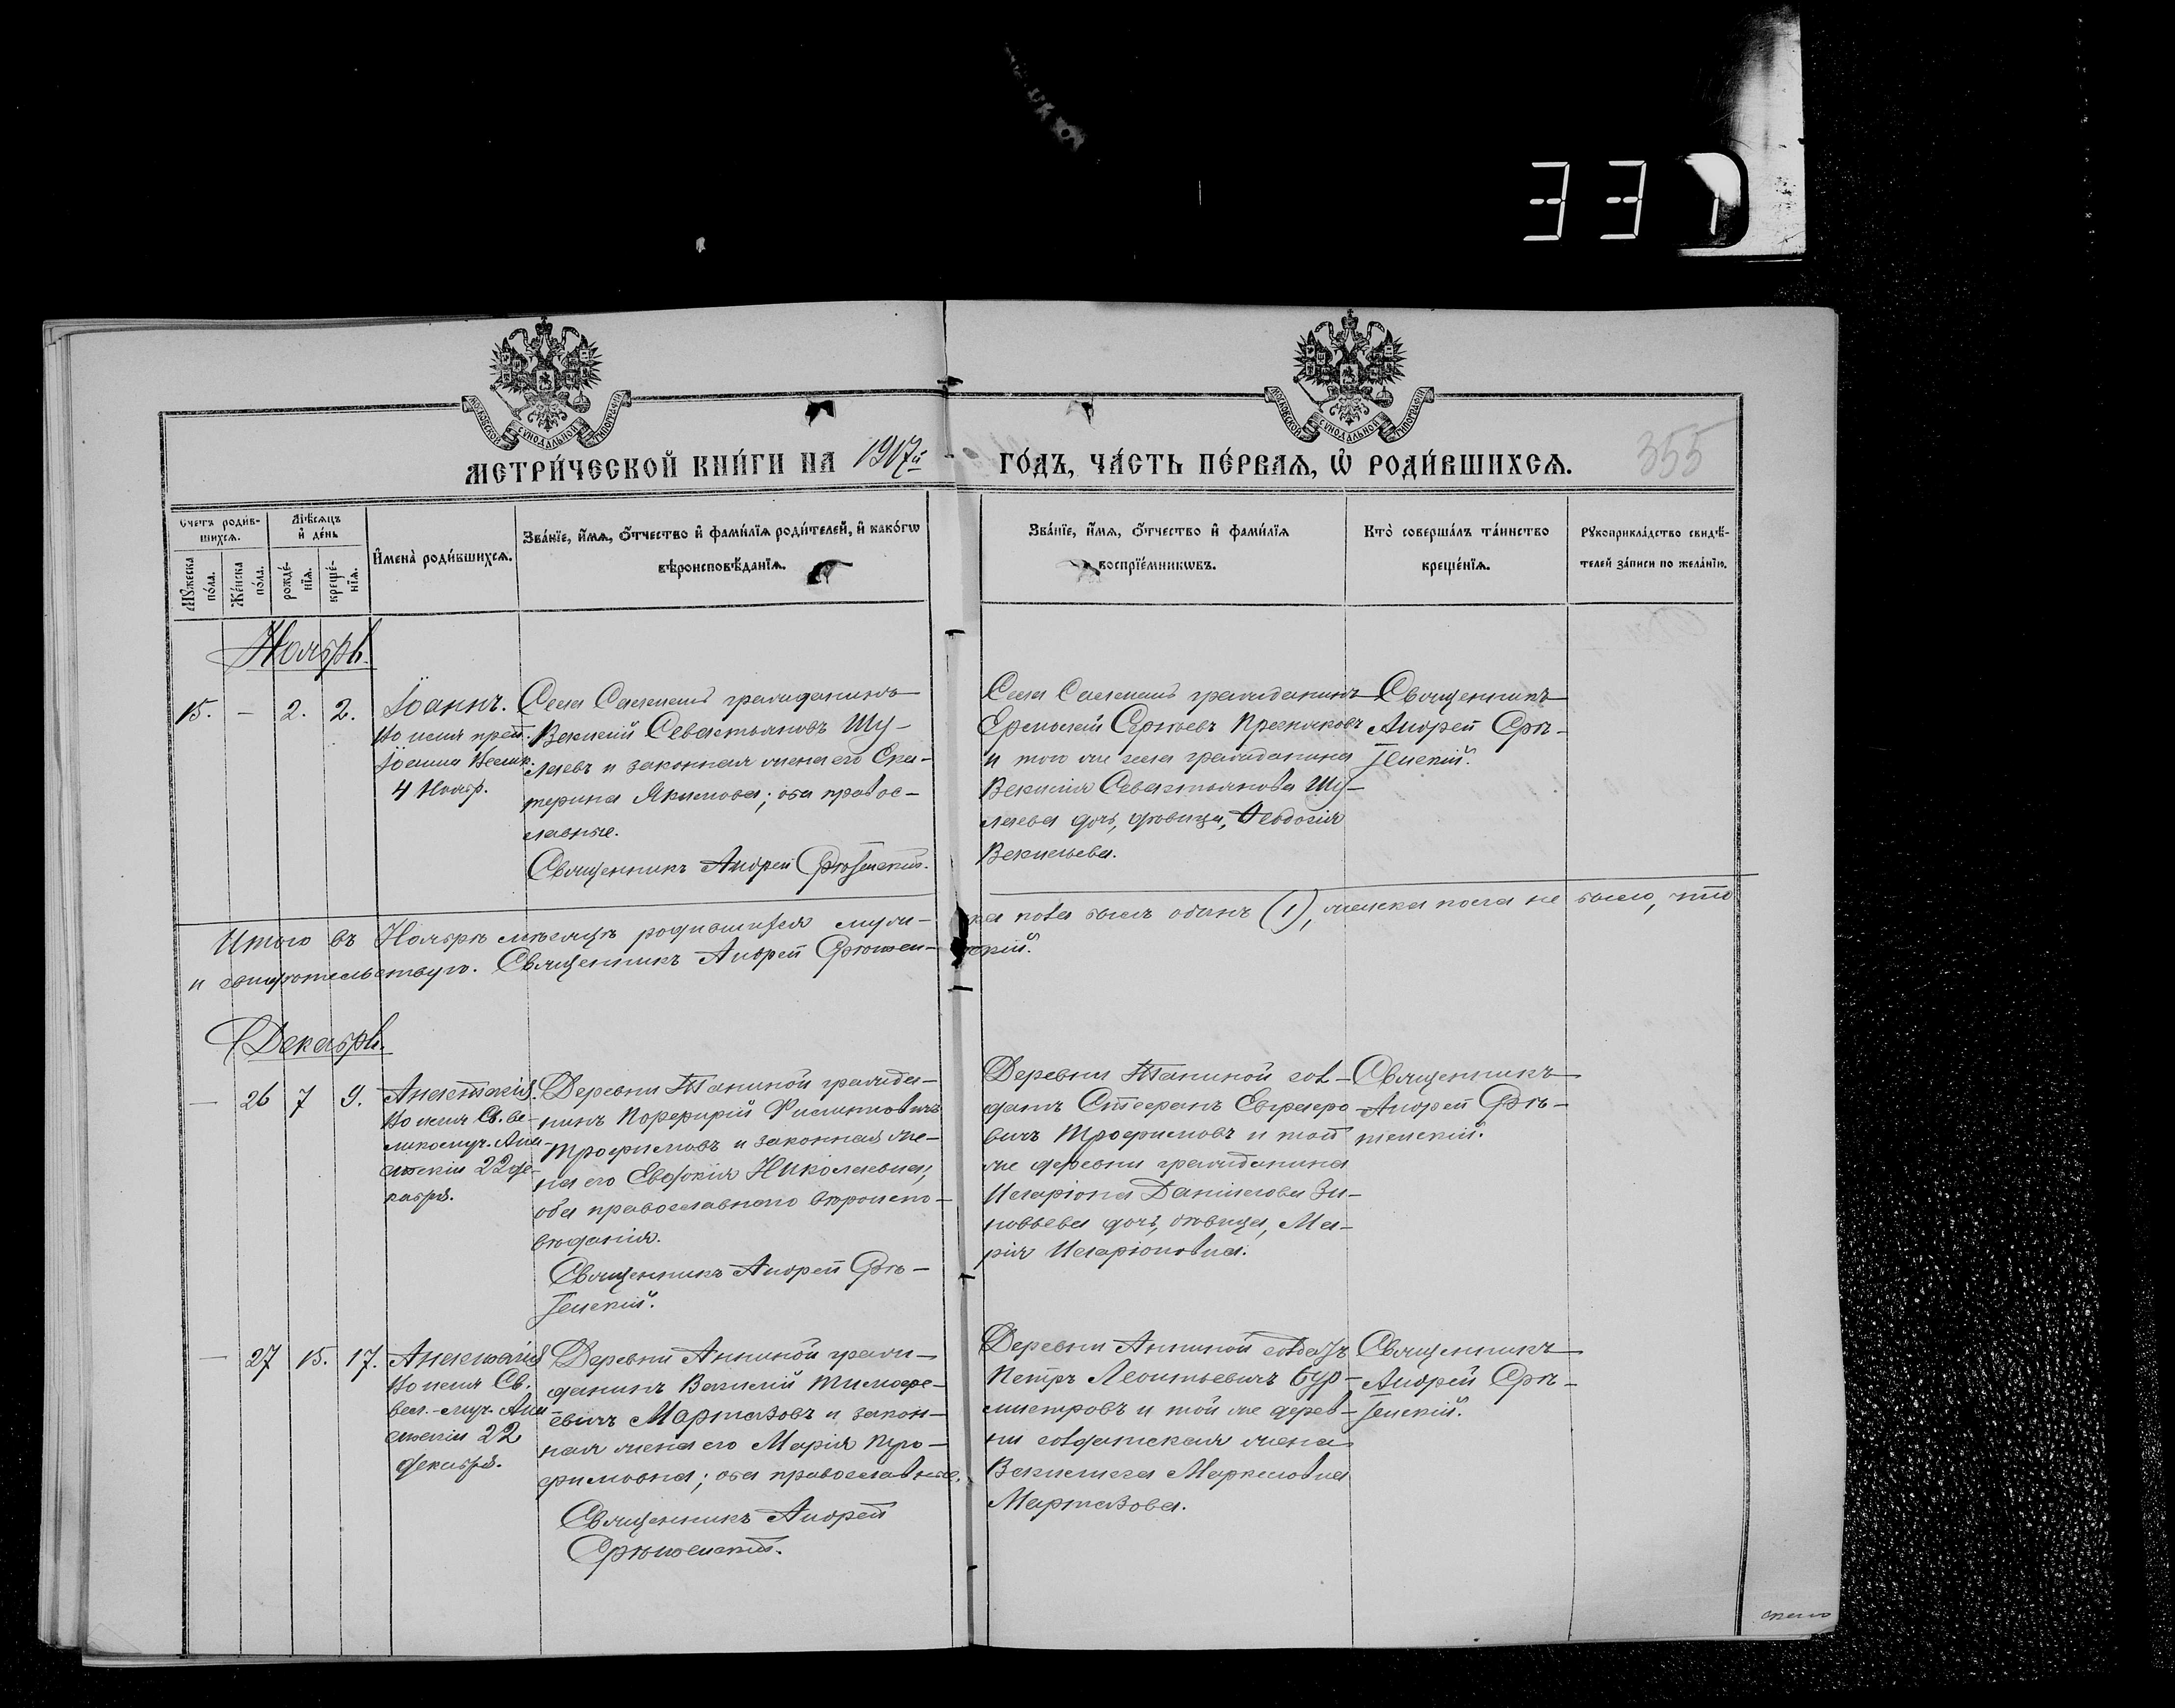 337
МЕТРИ́ЧЕСКОЙ КНИ́ГИ НА 1917й ГО́ДЪ, ЧА́СТЬ ПЕ́РВАѦ, Ѡ҆ РОДИ́ВШИХСѦ. 355
Счетъ родив-
шихсѧ.
Мѣсѧцъ
и҆ день
Мꙋжеска
по́ла.
Же́нска
по́ла.
рожде́-
нїѧ.
креще́-
нїѧ.
И҆мена̀ роди́вшихсѧ.
Зва́нїе, и҆́мѧ, ѻ҆́тчество и҆ фами́лїѧ роди́телей, и҆ како́гѡ
вѣроисповѣ́данїѧ.
Зва́нїе, и҆́мѧ, ѻ҆́тчество и҆ фами́лїѧ
воспрїе́мникѡвъ.
Кто̀ соверша́лъ та́инство
креще́нїѧ.
Рꙋкоприкла́дство свидѣ́-
телей за́писи по жела́нїю.
Ноябрь.
15. — 2. 2.
Іоаннъ.
Во имя преп.
Іоанна Велик.
4 Нояб.
гражданинъ
Василій Севастьяновъ Шу-
и законная жена его Ека-
терина Якимова; оба правос-
лавные.
Священникъ Андрей Срѣтенскій.
гражданинъ
Сергѣевъ
и того же села гражданина
Василія Севастьянова Шу-
дочь, дѣвица, Ѳеодосія
Васильева.
Священникъ
Андрей Срѣ-
тенскій.
Итого въ Ноябрѣ мѣсяцѣ родившихся муже-ска пола былъ одинъ (1), женска пола не было, что
и свидѣтельствую. Священникъ Андрей Срѣтен-скій.
Декабрь.
— 26 7 9.
Анастасія.
Во имя Св. ве-
ликомуч. Ана-
стасіи 22 де-
кабря.
Деревни Таниной гражда-
нинъ Порфирій Филипповичъ
Трофимовъ и законная же-
на его Евдокія Николаевна;
оба православнаго вѣроиспо-
вѣданія.
Священникъ Андрей Срѣ-
тенскій.
Деревни Таниной сол-
датъ Стефанъ Евграфо-
вичъ Трофимовъ и той
же деревни гражданина
Иларіона Данилова Зи-
новьева дочь, дѣвица, Ма-
рія Иларіоновна.
Священникъ
Андрей Срѣ-
тенскій.
— 27 15. 17.
Анастасія
Во имя Св.
вел.-муч. Ана-
стасіи 22
декабря.
Деревни Аниной граж-
данинъ Василій Тимофе-
евичъ Мартазовъ и закон-
ная жена его Марія Тро-
фимовна; оба православные.
Священникъ Андрей
Срѣтенскій.
Деревни Аниной солдатъ
Петръ Леонтьевичъ Бур-
мистровъ и той же дерев-
ни солдатская жена
Василиса Марковна
Мартазова.
Священникъ
Андрей Срѣ-
тенскій.